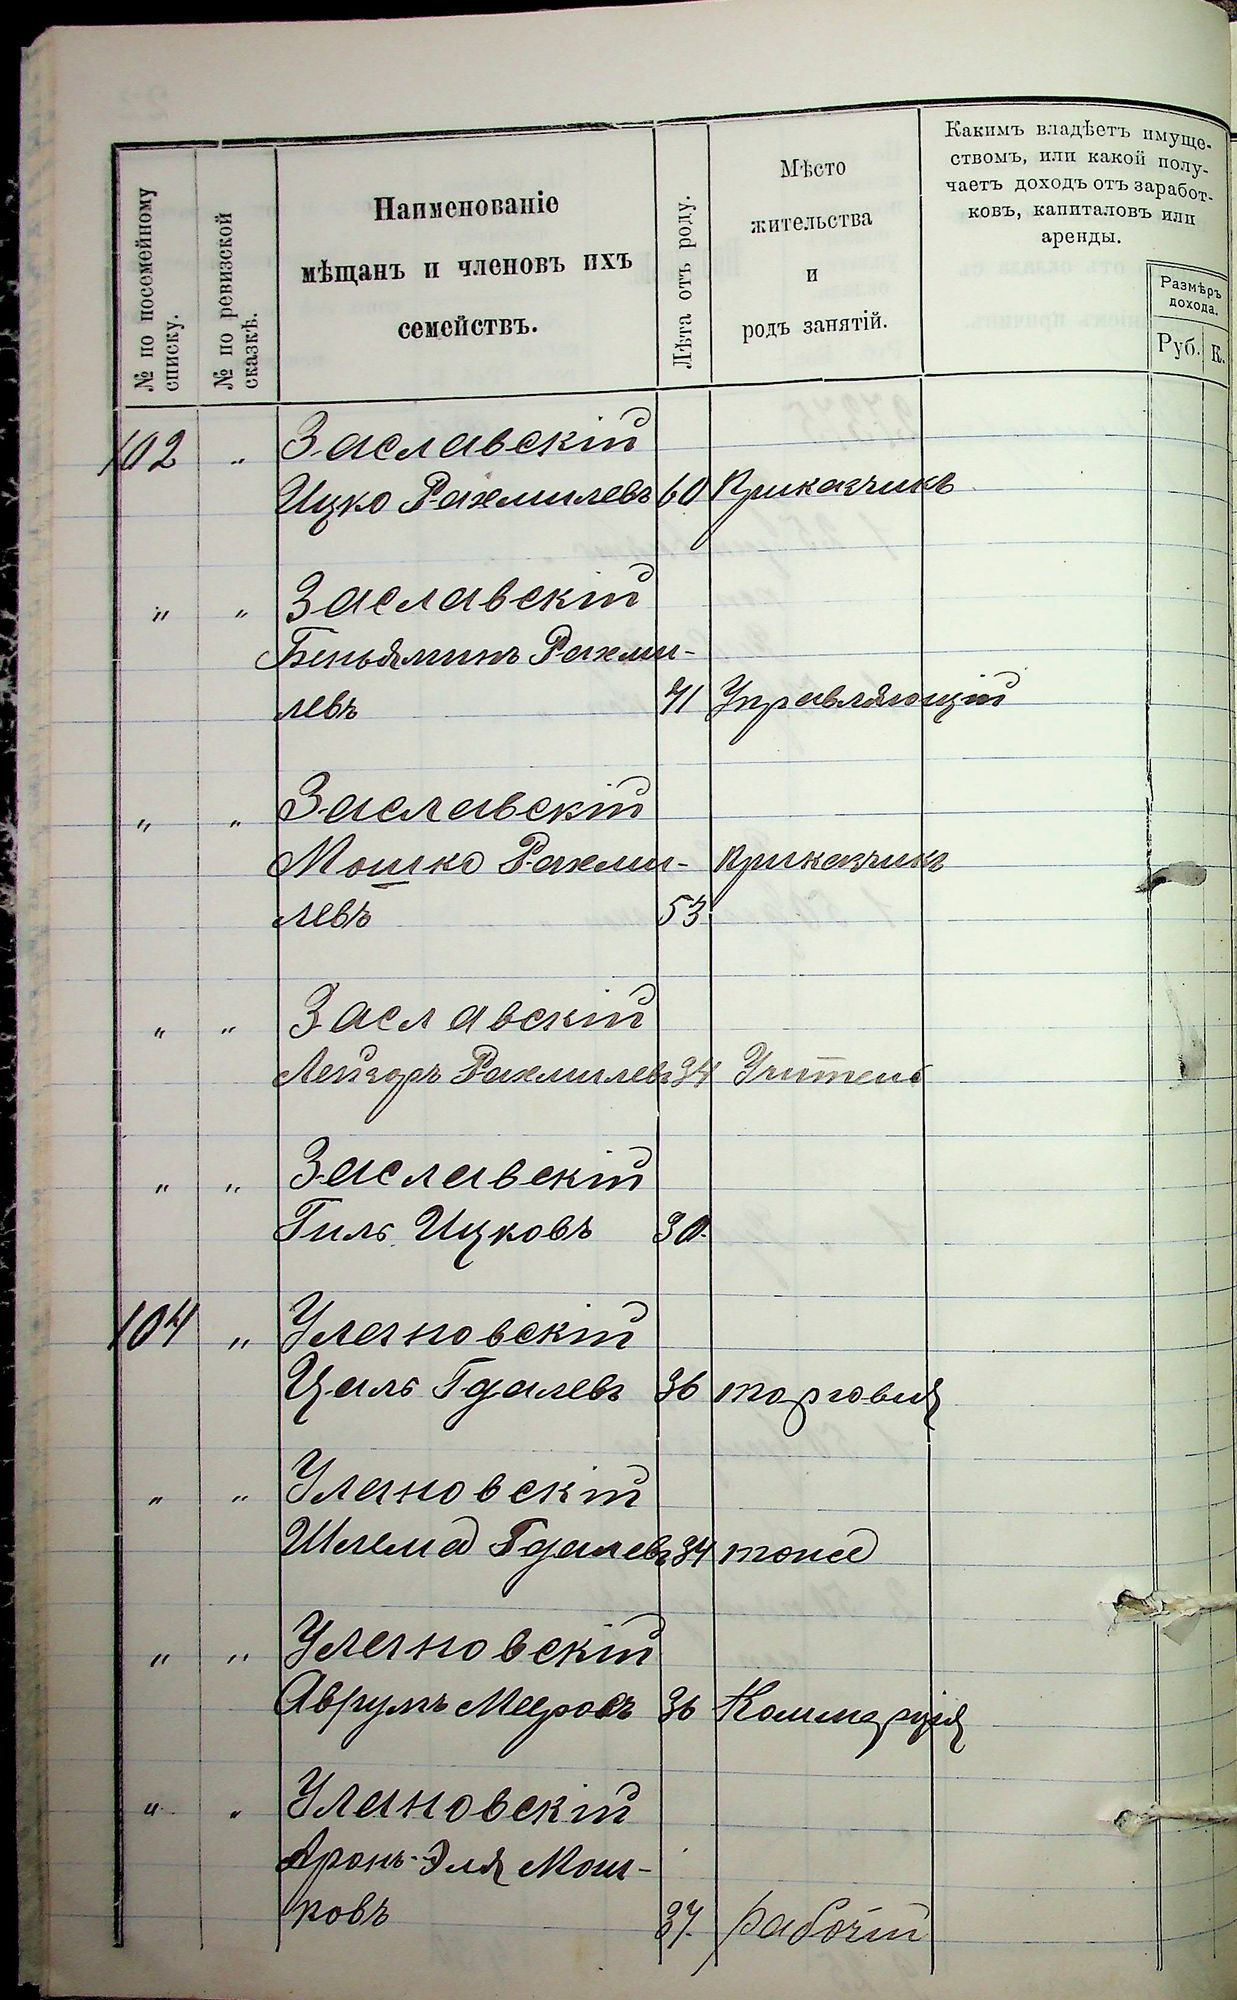 № по посемейному
списку.
№ по ревизской
сказкѣ.
Наименованіе
мѣщанъ и членовъ ихъ
семействъ.
Лѣта отъ роду.
Мѣсто
жительства
и
родъ занятій.
Какимъ владѣетъ имуще-
ствомъ, или какой полу-
чаетъ доходъ отъ заработ-
ковъ, капиталовъ или
аренды.
Размѣръ
дохода.
Руб. К.
102 „ Заславскій
Ицко Рахмилевъ 60 Приказчикъ
„ „ Заславскій
Беньяминъ Рахми-
левъ 41 Управляющій
„ „ Заславскій
Мошко Рахми- Приказчикъ
левъ 53
„ „ Заславскій
Лейзоръ Рахмилевъ 34 Учитель
„ „ Заславскій
Гиль Ицковъ 30
104 „ Улановскій
Цаль Гдалевъ 36 торговля
„ „ Улановскій
Шлема Гдалевъ 34 тоже
„ „ Улановскій
Аврумъ Мееровъ 36 Коммерція
„ „ Улановскій
Аронъ-Эля Мош-
ковъ 37. рабочій